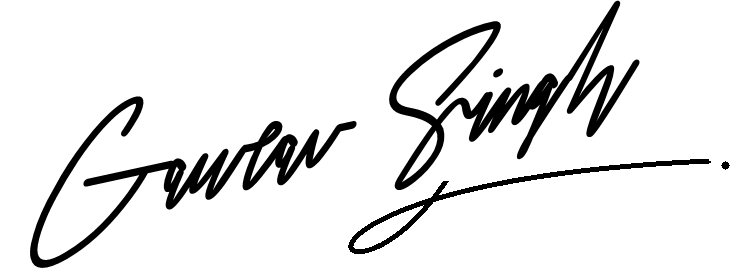 Gaurav Singh